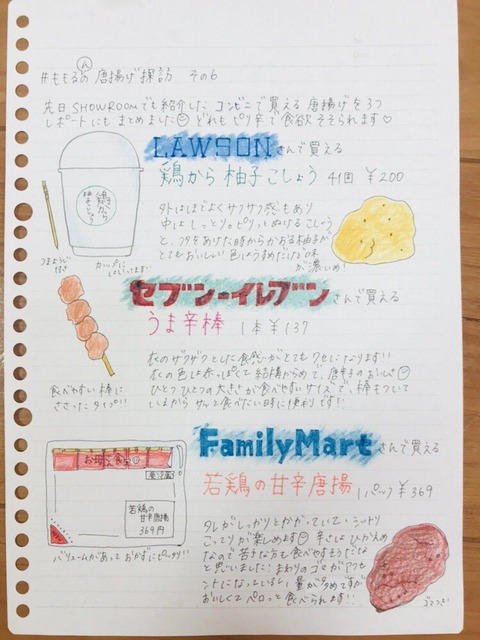 #ももるんの唐揚げ探訪 その6
先日SHOWROOMでも紹介した コンビニで買える 唐揚げを3つ
レポートにもまとめました どれもピリ辛で食欲そそられます♡
LAWSONさんで買える
鶏から 柚子こしょう 4個 ¥200
外はほどよくサクサク感もあり
中はしっとり。ピリッとぬけるこしょう
と、フタをあけた時からかおる柚子が
とてもおいしい 色はうすめだけど味
が濃いめ!
鶏から
柚子こしょう
つまようじ
付き
カップに
入っています!
セブン-イレブンさんで買える
うま辛棒 1本 ¥137
衣のザクザクとした食感がとてもクセになります!!
衣の色は赤っぽくて 結構からめで、唐辛子のおいしさ
ひとつひとつの大きさが食べやすいサイズで、棒もついて
いるから サッと食べたい時に便利です!!
食べやすい棒に
ささったタイプ!!
FamilyMartさんで買える
若鶏の甘辛唐揚 1パック ¥369
タレがしっかりとかかっていて、シットリ
こってりが楽しめます 辛さはひかえめ
なので苦手な方も食べやすそうだな
と思いました! まわりのゴマがアクセ
ントになっているし、量が多めですが
おいしくてペロっと食べられます!!
お母さん食堂
若鶏の
甘辛唐揚
369円
バリュームがあって おかずにピッタリ!!
ゴマつき!